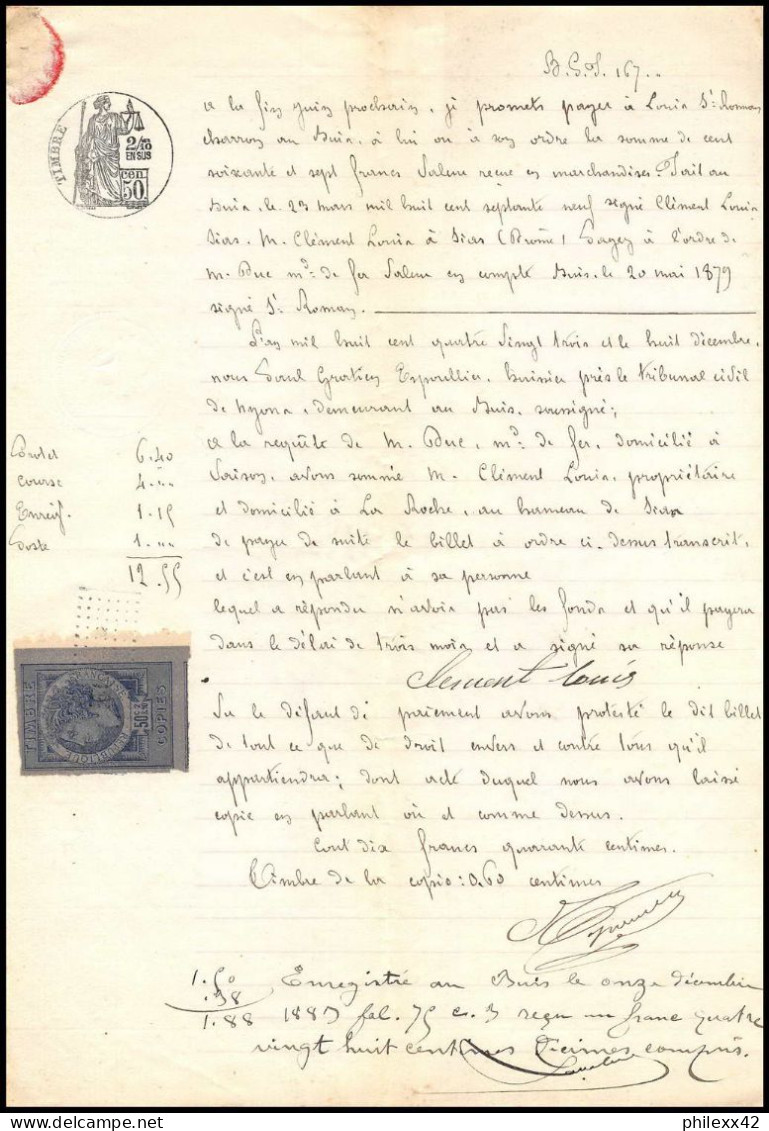 B. G. P. 167..
TIMBRE
2/10
EN SUS
cen.
50.
A la fin juin prochain, je promets payer à Louis St Roman
charron au Buis, à lui ou à son ordre la somme de cent
soixante et sept francs valeur reçue en marchandises. Fait au
Buis, le 23 mars mil huit cent septante neuf signé Clément Louis
M. Clément Louis à (Drôme) Payez à l'ordre de
M. Duc md de fer valeur en compte Buis, le 20 mai 1879
signé St Roman.
L'an mil huit cent quatre vingt trois et le huit décembre,
nous Paul Gratien Espoullier, huissier près le tribunal civil
de Nyons, demeurant au Buis, soussigné;
A la requête de M. Duc, md de fer, domicilié à
Vaison, avons sommé M. Clément Louis, propriétaire
et domicilié à La Roche, au hameau de
de payer de suite le billet à ordre ci-dessus transcrit,
et c'est en parlant à sa personne
lequel a répondu n'avoir pas les fonds et qu'il payera
dans le délai de trois mois et a signé sa réponse
Protet 6.40
course 4."
Enreg. 1.15
Poste 1."
12.55
TIMBRE
RÉPUBLIQUE FRANÇAISE
50c
COPIES
Clement Louis
Vu le défaut de paiement avons protesté le dit billet
de tout ce que de droit envers et contre tous qu'il
appartiendra; dont acte duquel nous avons laissé
copie en parlant où et comme dessus.
Cout dix francs quarante centimes.
Timbre de la copie: 0.60 centimes
1.50
.38
1.88
Enregistré au Buis le onze décembre
1883 fol. 75 c. 3 reçu un franc quatre
vingt huit centimes décimes compris.
philexx42